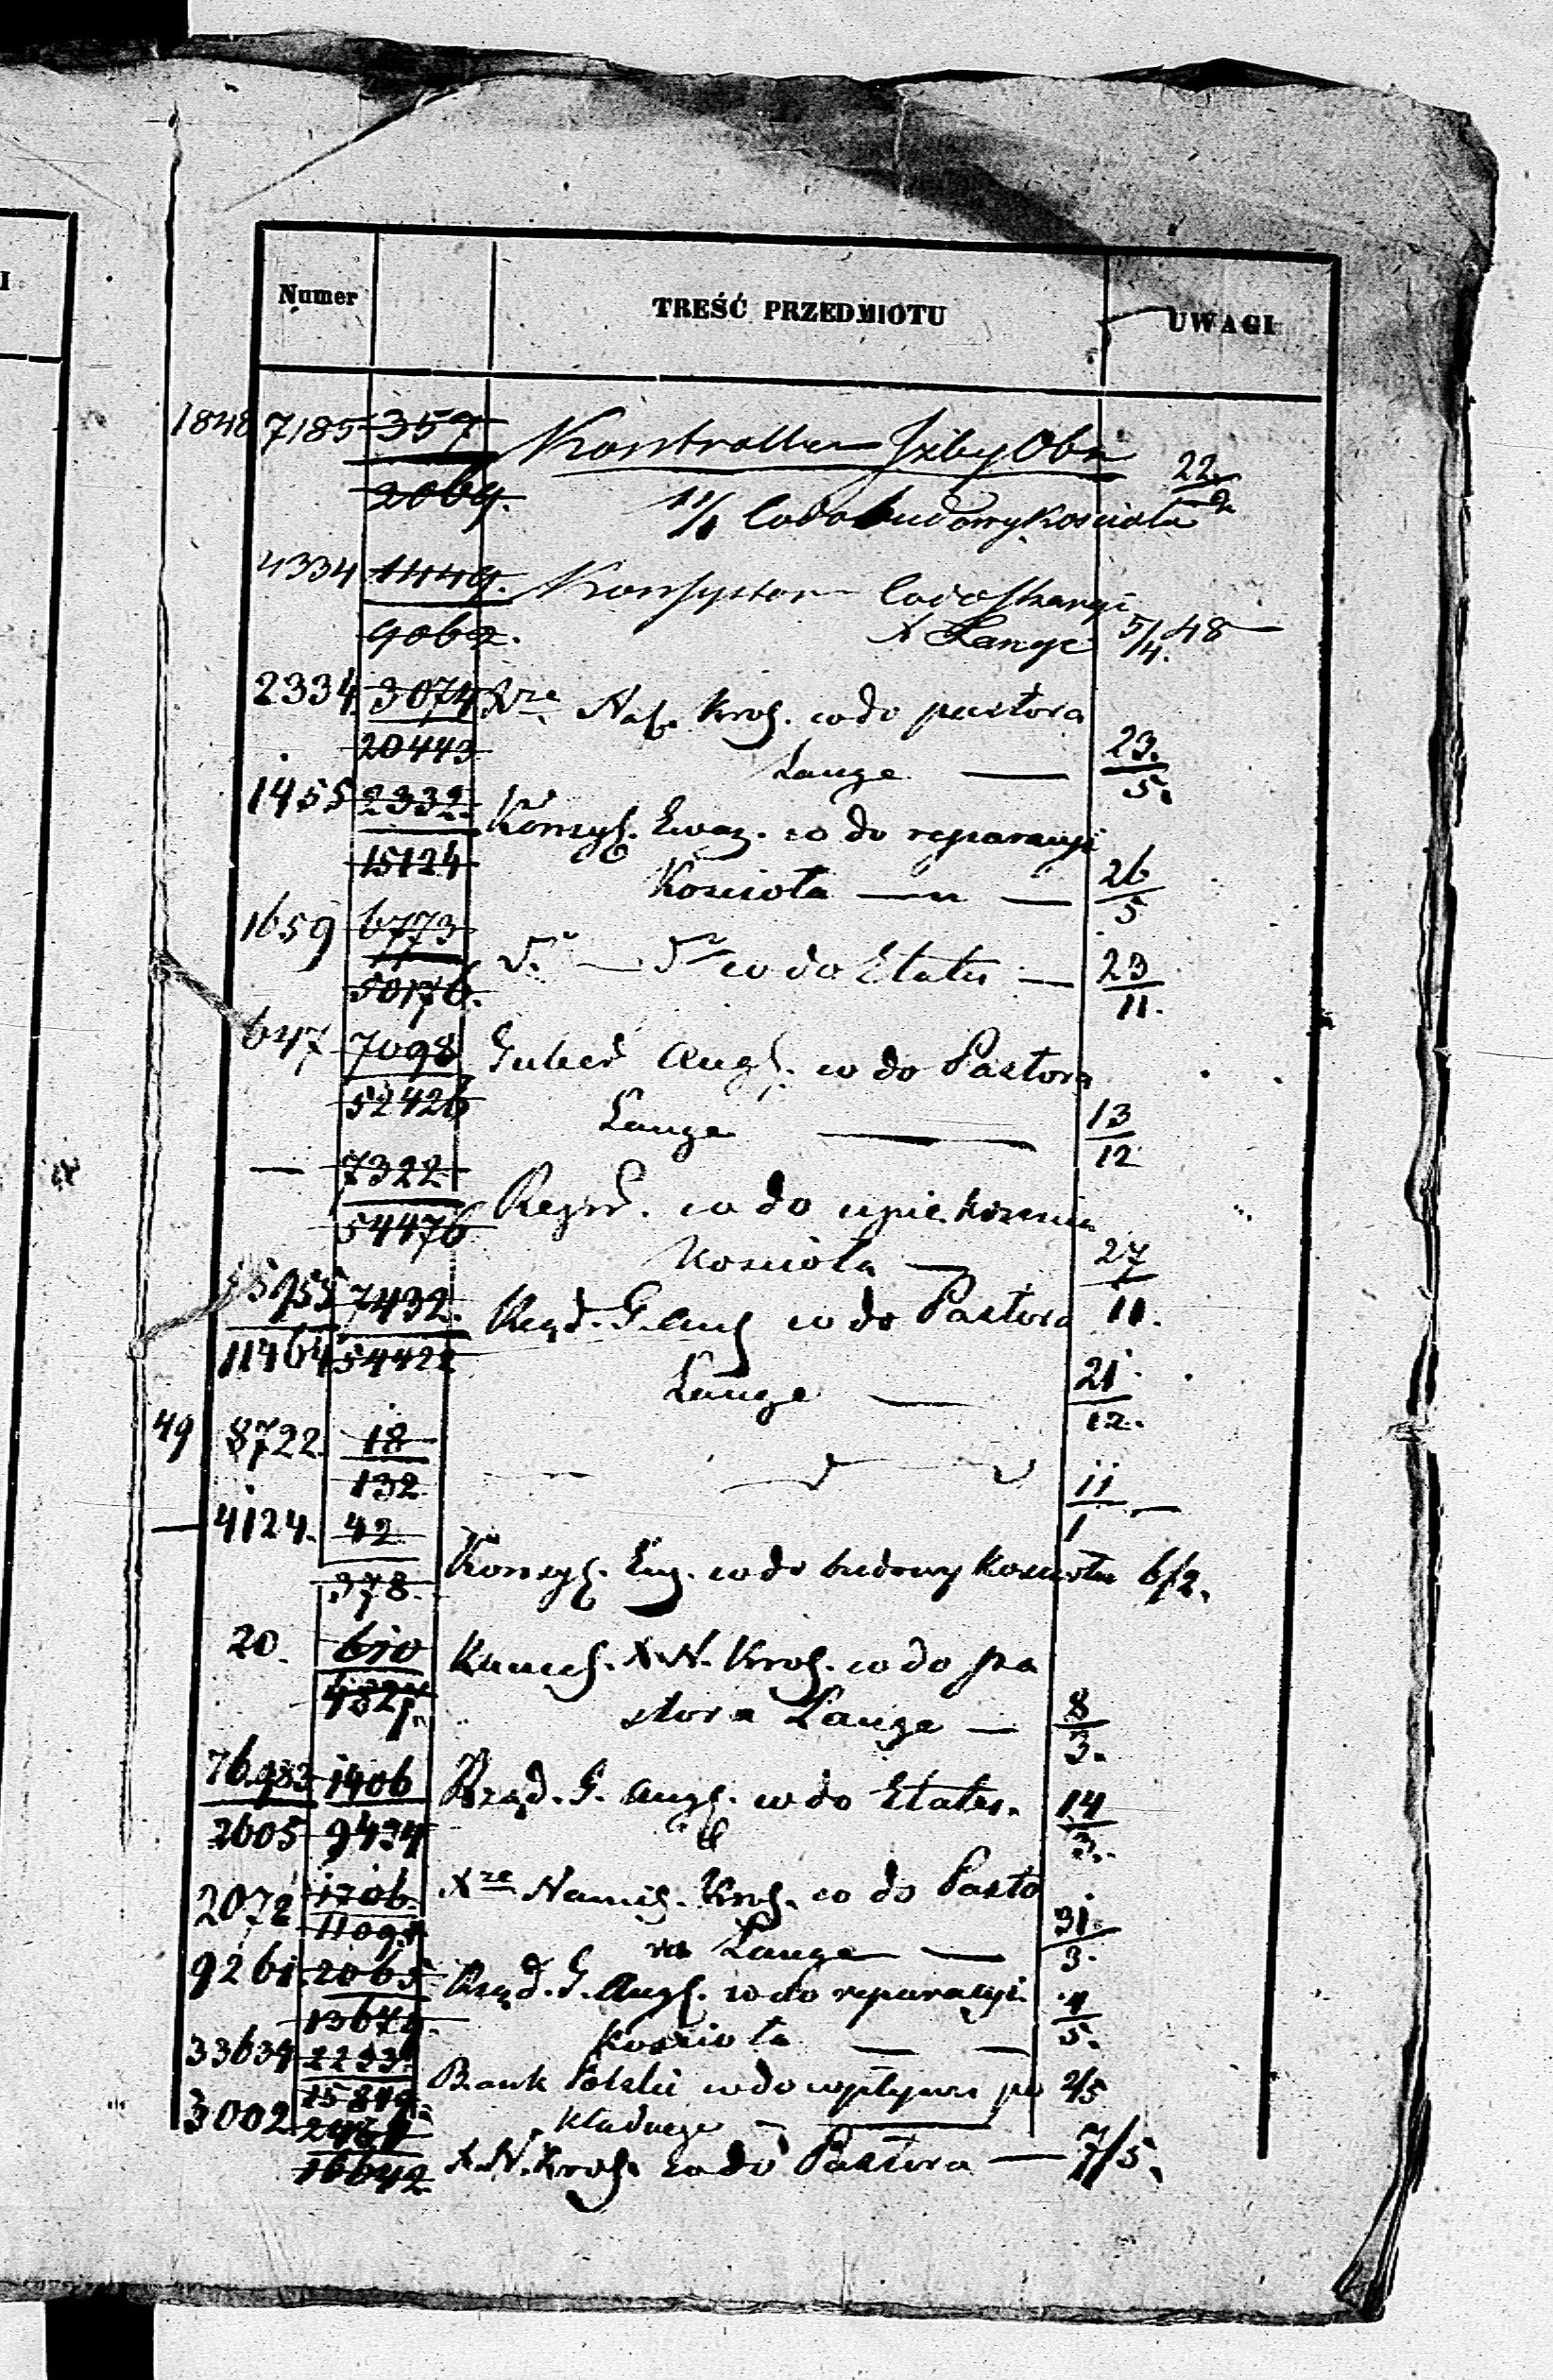 I
Numer TREŚĆ PRZEDMIOTU UWAGI
1848 7185 357 Kontroller Izby Obr 22
2069. 11/1 Codo budowy Kościoła 2
4334 1449. Konsystorz Codo skargi
9062. X Lange 5/4. 48
2334. 3074 Xże Nas. Król. co do pastora
20443 Lange — 23./5.
1455 2332. Konsys. Ewan. co do reparacyi
15124 Kościoła — 26/5
1659 6773 co do Etatu — 23/11.
50176.
647 7098 Guber Aug. co do Pastora
52426 Lange — 13/12
— 7322 co do upiekszenia
54476 Kościoła — 27/11.
7432. Rząd. G. Aug co do Pastora
11464 Lange — 21/12.
49 8722. 18 — 11/1 —
132
— 4124. 42 Konsys. Ew. co do budowy Kościoła 6/2.
378.
20. 610 X. N. Król. co do pa
stora Lange — 8/3.
76983 1406 Rząd. G. Aug. co do Etatu. 14/3.
2605 9434
2072 1706. Xże Namies. Król. co do Pasto
ra Lange — 31/3.
9261. 2065 Rząd. G. Aug. co do reparacyi 4/5.
13674. Kościoła — —
33634 Bank Polski co do wpływu po 2/5
kładnego —
3002 X. N. Król. co do Pastora — 7/5.
16642.